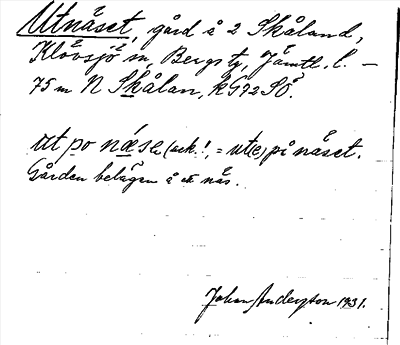 Utnäset, gård å 2 Skåland,
Klövsjö sn, Bergs tg, Jämtl. l. –
75 m N Skålan, kG72SÖ.
ut po næsl (ack.!, = ut(e) på näset.
Gården belägen å ett näs.
Johan Anderzton 1931.